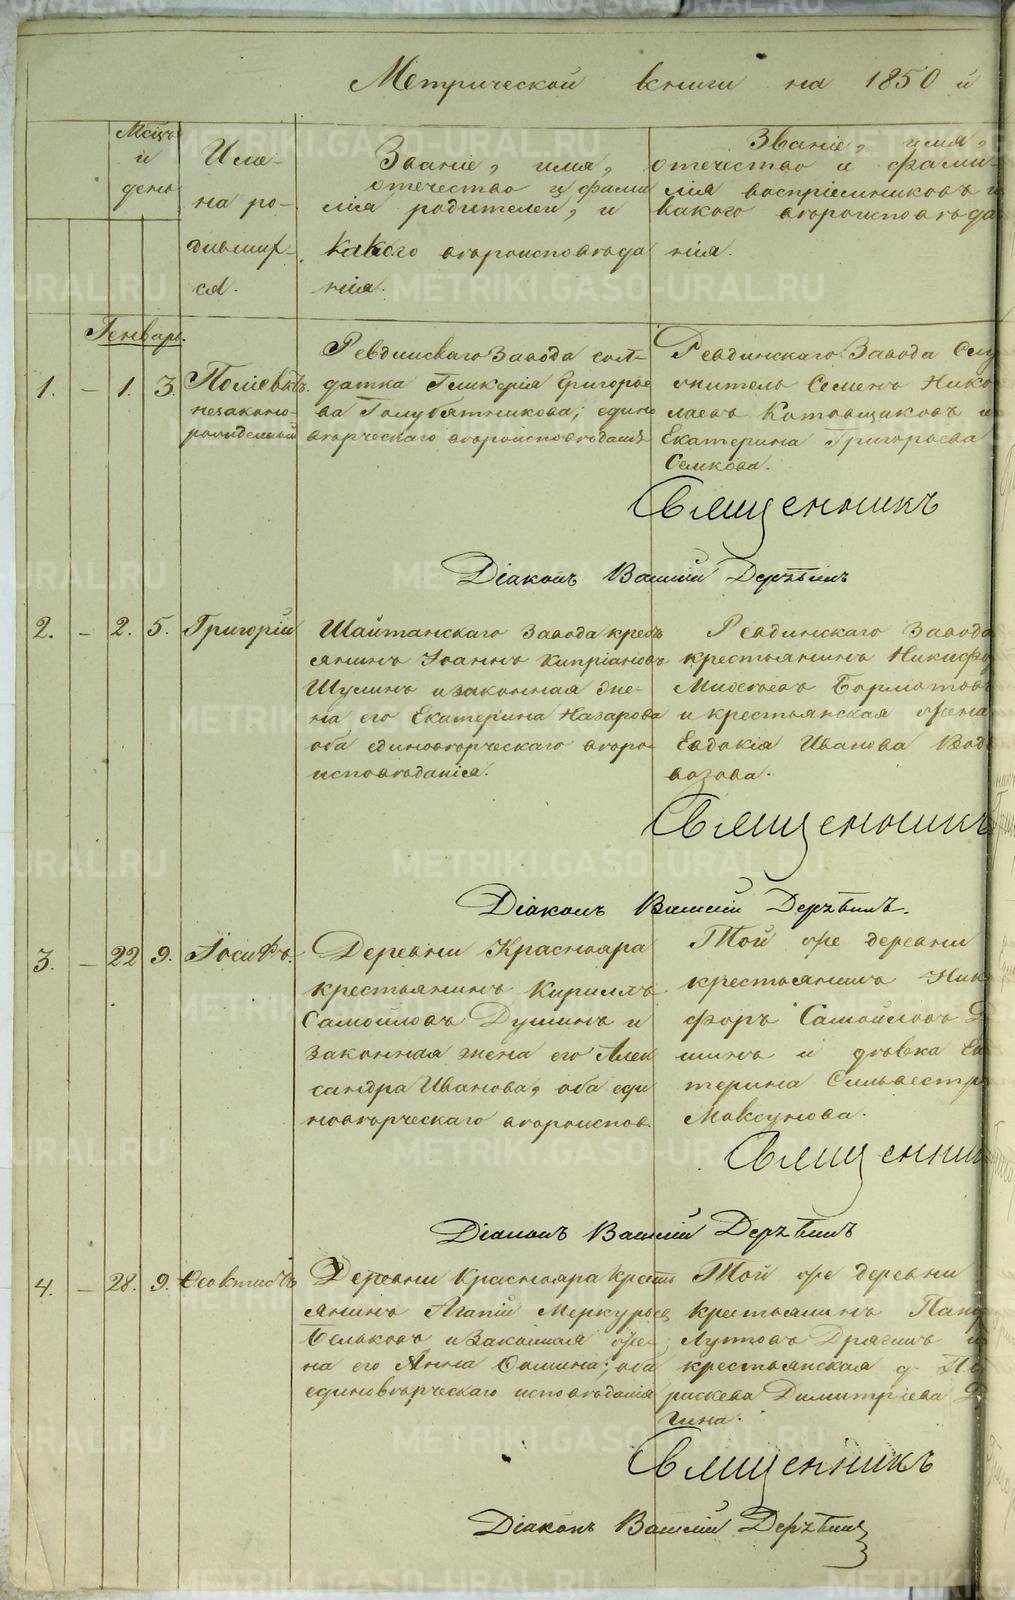 Метрической книги на 1850 й
Мсцъ и день
Име-
на ро-
дившиx-
ся.
Званіе, имя,
отечество и фами
лія родителей, и
какого вѣроисповѣда
нія.
Званіе, имя,
отечество и фами-
лія воспріемниковъ и
какого вѣроисповѣда
нія.
Генварь.
1. – 1. 3.
незаконно-
рожденный
Ревдинскаго Завода сол-
датка Гликерія Григорье
ва Голубятникова; едино
вѣрческаго вѣроисповѣданія
Ревдинскаго Завода Слу
житель Семенъ Нико
лаевъ Котовщиковъ и
Екатерина Григорьева
Семкова.
Священникъ
Діаконъ Василій
2. – 2. 5. Григорій
Шайтанскаго Завода крест
янинъ Іоаннъ Кипріановъ
Шулинъ и законная же-
на его Екатерина Назарова
оба единовѣрческаго вѣро-
исповѣданія.
Ревдинскаго Завода
крестьянинъ Никифо
Бормотовъ
и крестьянская жена
Евдокія Иванова Вод
возова.
Священникъ
Діаконъ Василій
3. – 22 9. Іосифъ.
Деревни Краснояра
крестьянинъ Кириллъ
Самойловъ Душинъ и
законная жена его Алек
сандра Иванова, оба еди
новѣрческаго вѣроиспов.
Той же деревни
крестьянинъ Ник
форъ Самойловъ Д
шинъ и дѣвка Ека
терина Сильвестр
Максунова.
Священник
Діаконъ Василій
4. – 28. 9. Ѳеоктистъ
Деревни Краснояра Крест
янинъ Агапій Меркурьев
Бельковъ и Законная же-
на его Анна Ѳомина; оба
единовѣрческаго исповѣданія
Той же деревни
крестьянинъ
и
крестьянская д. Па
раскева Димитріева Д
гина.
Священникъ
Діаконъ Василій
METRIKI.GASO-URAL.RU